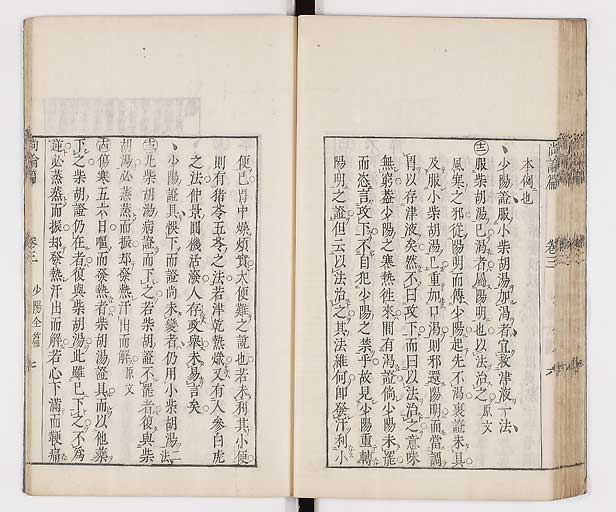 本例也
少陽證服小柴胡湯加渴者宜救津液一法
㊂服柴胡湯已渴者屬陽明也以法治之原文
風寒之邪從陽明而傳少陽起先不渴裏證未具
及服小柴胡湯已重加口渴則邪還陽明而當調
胃以存津液矣然不曰攻下而曰以法治之意味
無窮蓋少陽之寒熱往來間有渴證倘少陽未罷
而恣言攻下不自犯少陽之禁乎故見少陽重轉
陽明之證但云以法治之其法維何即發汗利小
便已胃中燥煩實大便難之說也若未利其小便
則有猪苓五苓之法若津乾熱熾又有人參白虎
之法仲景圓機活潑人存政舉未易言矣
少陽證具悞下而證尚未變者仍用小柴胡湯二法
凡柴胡湯病證而下之若柴胡證不罷者復與柴
胡湯必蒸蒸而振却發熱汗出而解原文
傷寒五六日嘔而發熱者柴胡湯證具而以他藥
下之柴胡證仍在者復與柴胡湯此雖已下之不為
逆必蒸蒸而振却發熱汗出而解若心下滿而鞕痛
尚論篇 卷三
尚論篇 卷三 少陽全篇 七